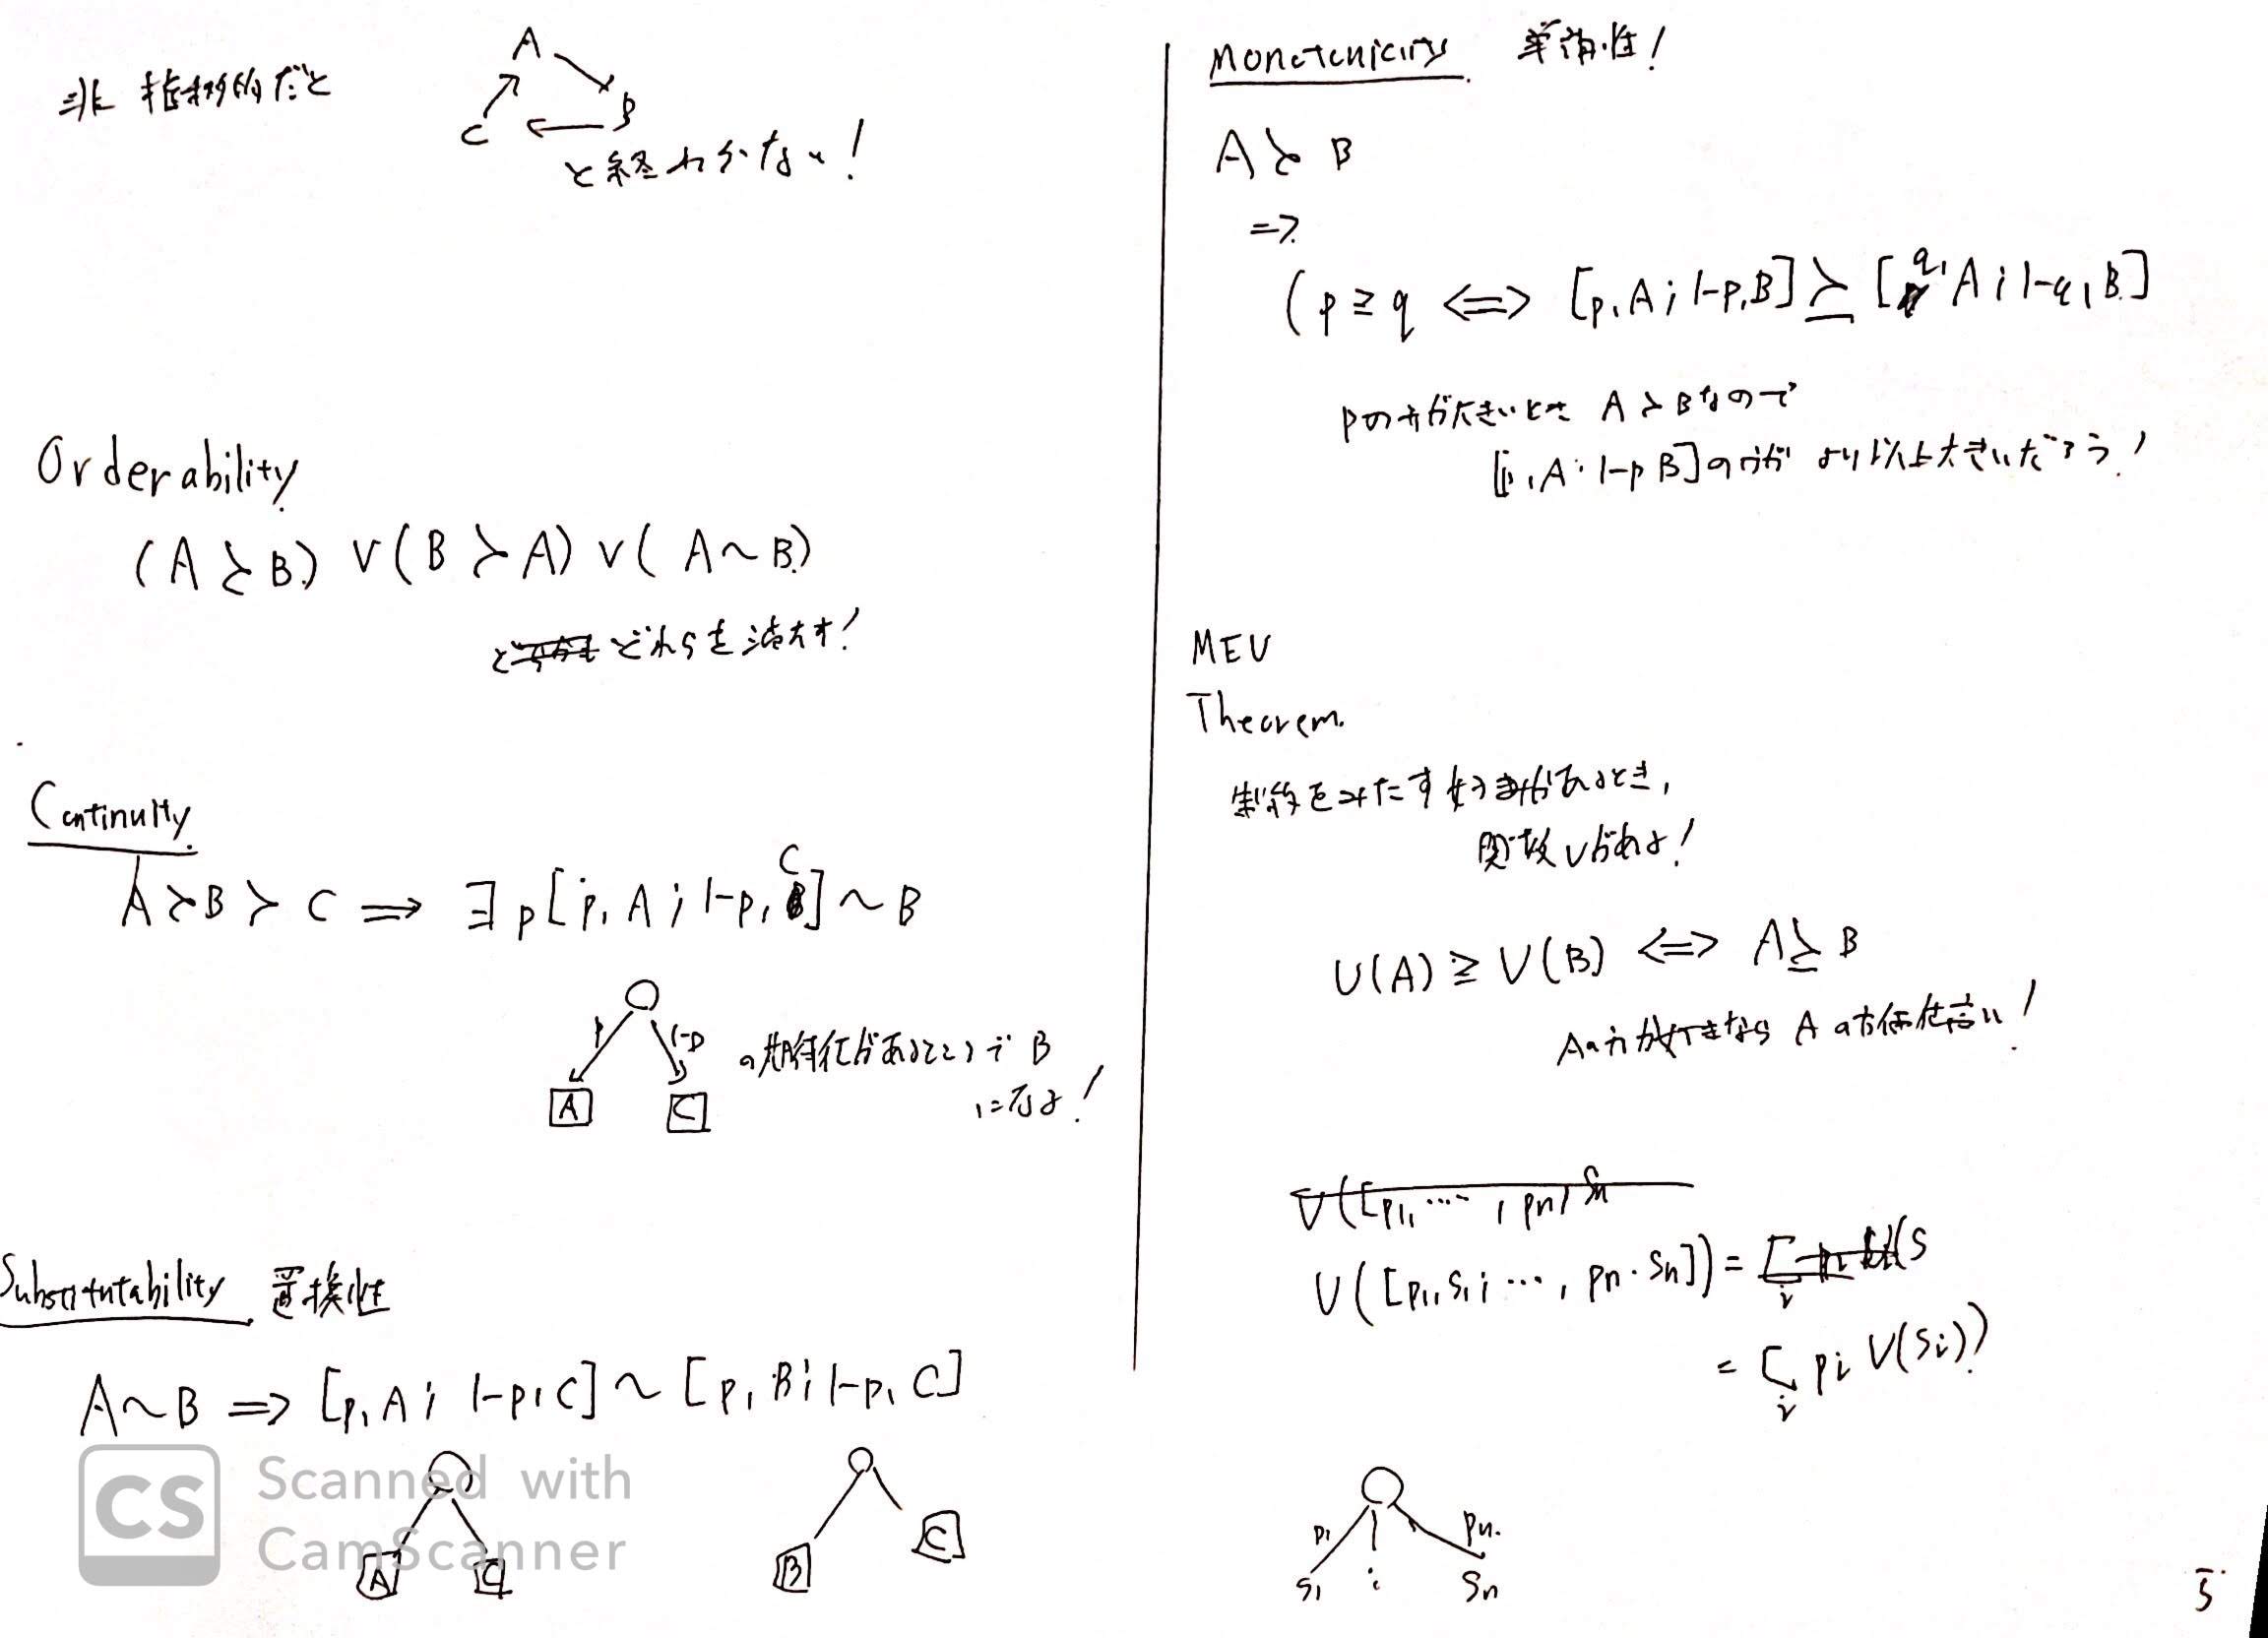 非推移的だと
A
B
C
と終わらない!
Orderability
(A ≻ B) ∨ (B ≻ A) ∨ (A ~ B)
どれらを満たす!
Continuity
A ≻ B ≻ C ⟹ ∃p [p, A; 1-p, C] ~ B
p 1-p
A C
の期待値があるところで B
になる!
Substitutability 置換性
A ~ B => [p, A; 1-p, C] ~ [p, B; 1-p, C]
A C B C
Monotonicity 単調性!
A ≻ B
=>
(p ≥ q <=> [p, A; 1-p, B] ≽ [q, A; 1-q, B]
pの方が大きいとき A ≻ B なので
[p, A; 1-p B]の方が より以上大きいだろう!
MEU
Theorem.
制約をみたす好みがあるとき,
関数Uがあるよ!
U(A) ≥ U(B) <=> A ≽ B
Aの方が好きなら Aの方価値高い!
U([p1, ‥‥, pn, Sn
U([p1, S1; ‥‥, pn, Sn]) =
= Σi pi U(Si))
p1 pn.
S1 Sn
5
CS Scanned with
CamScanner